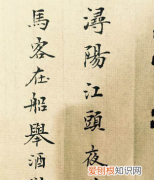 潯陽江頭夜
馬客在船舉酒
爱刨根知识网